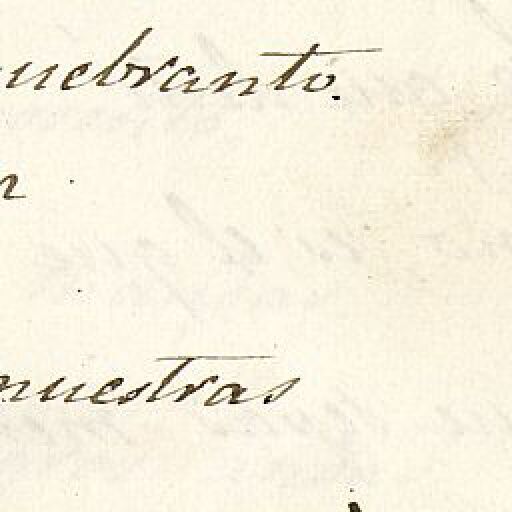 uebranto.
n
nuestras